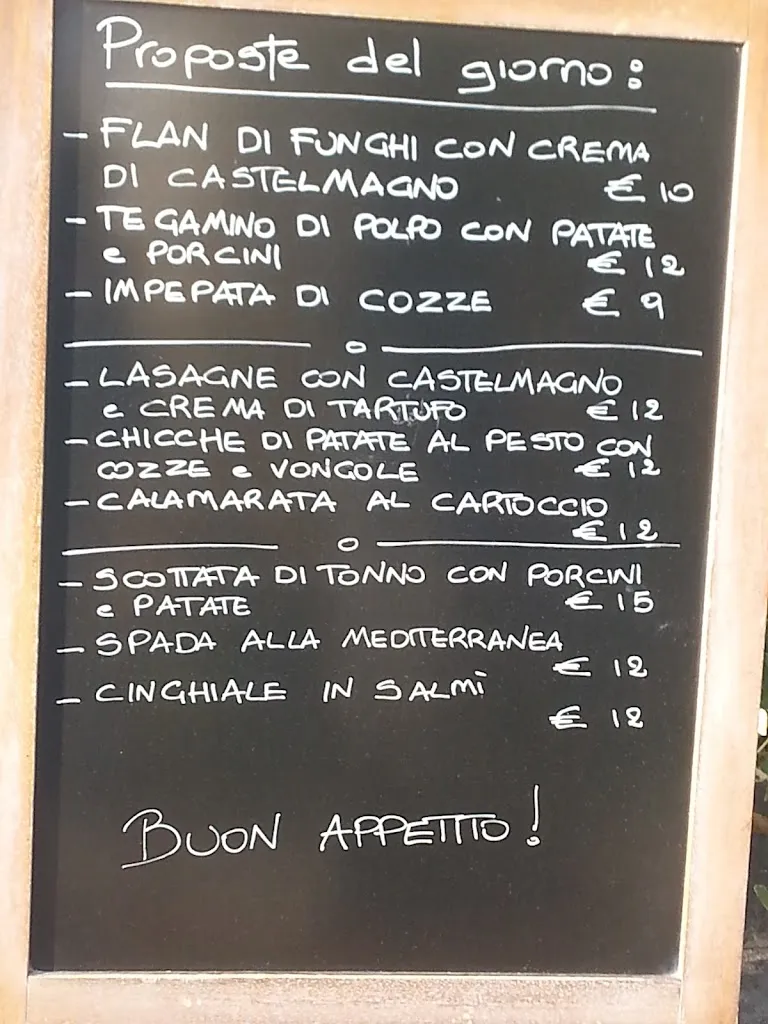 Proposte del giorno:
- FLAN DI FUNGHI CON CREMA
DI CASTELMAGNO € 10
- TEGAMINO DI POLPO CON PATATE
e PORCINI € 12
- IMPEPATA DI COZZE € 9
o
- LASAGNE CON CASTELMAGNO
e CREMA DI TARTUFO € 12
- CHICCHE DI PATATE AL PESTO CON
COZZE e VONGOLE € 12
- CALAMARATA AL CARTOCCIO
€ 12
o
- SCOTTATA DI TONNO CON PORCINI
e PATATE € 15
- SPADA ALLA MEDITERRANEA
€ 12
- CINGHIALE IN SALMÌ
€ 12
BUON APPETITO!